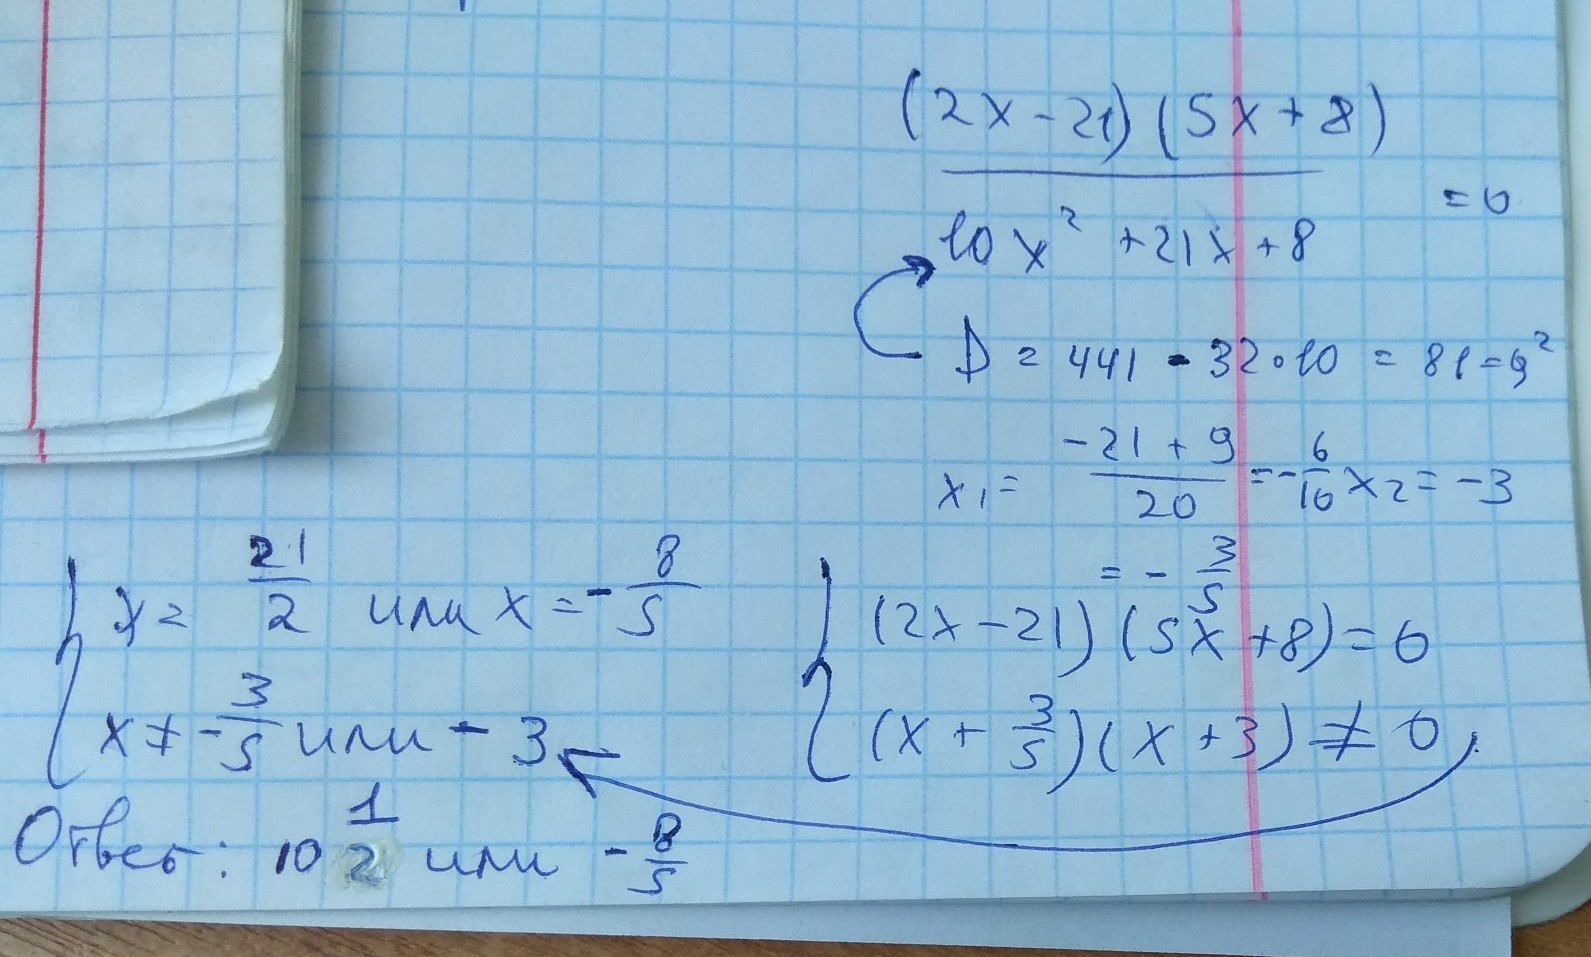 (2x - 21) (5x + 8)
10x² + 21x + 8 = 0
D = 441 - 32·10 = 81 = 9²
x₁ = -21 + 9 / 20 = - 6/10 x₂ = -3
= - 3/5
(2x - 21) (5x + 8) = 0
(x + 3/5) (x + 3) ≠ 0
x = 21/2 или x = - 8/5
x ≠ - 3/5 или - 3
Ответ: 10 1/2 или - 8/5